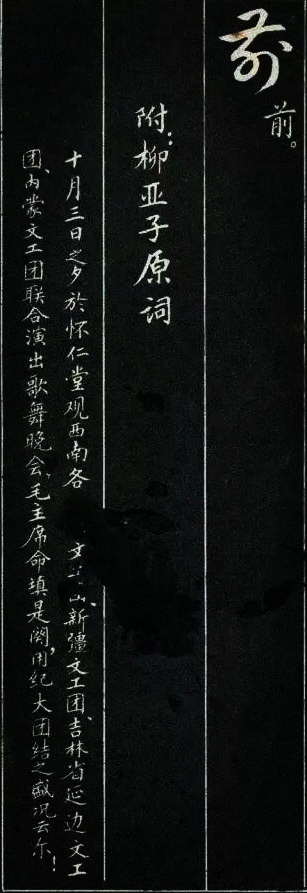 前
前。
附:柳亚子原词
十月三日之夕於怀仁堂观西南各 文工 、新疆文工团、吉林省延边文工
团、内蒙文工团联合演出歌舞晚会、毛主席命填是阕,用纪大团结之盛况云尔!